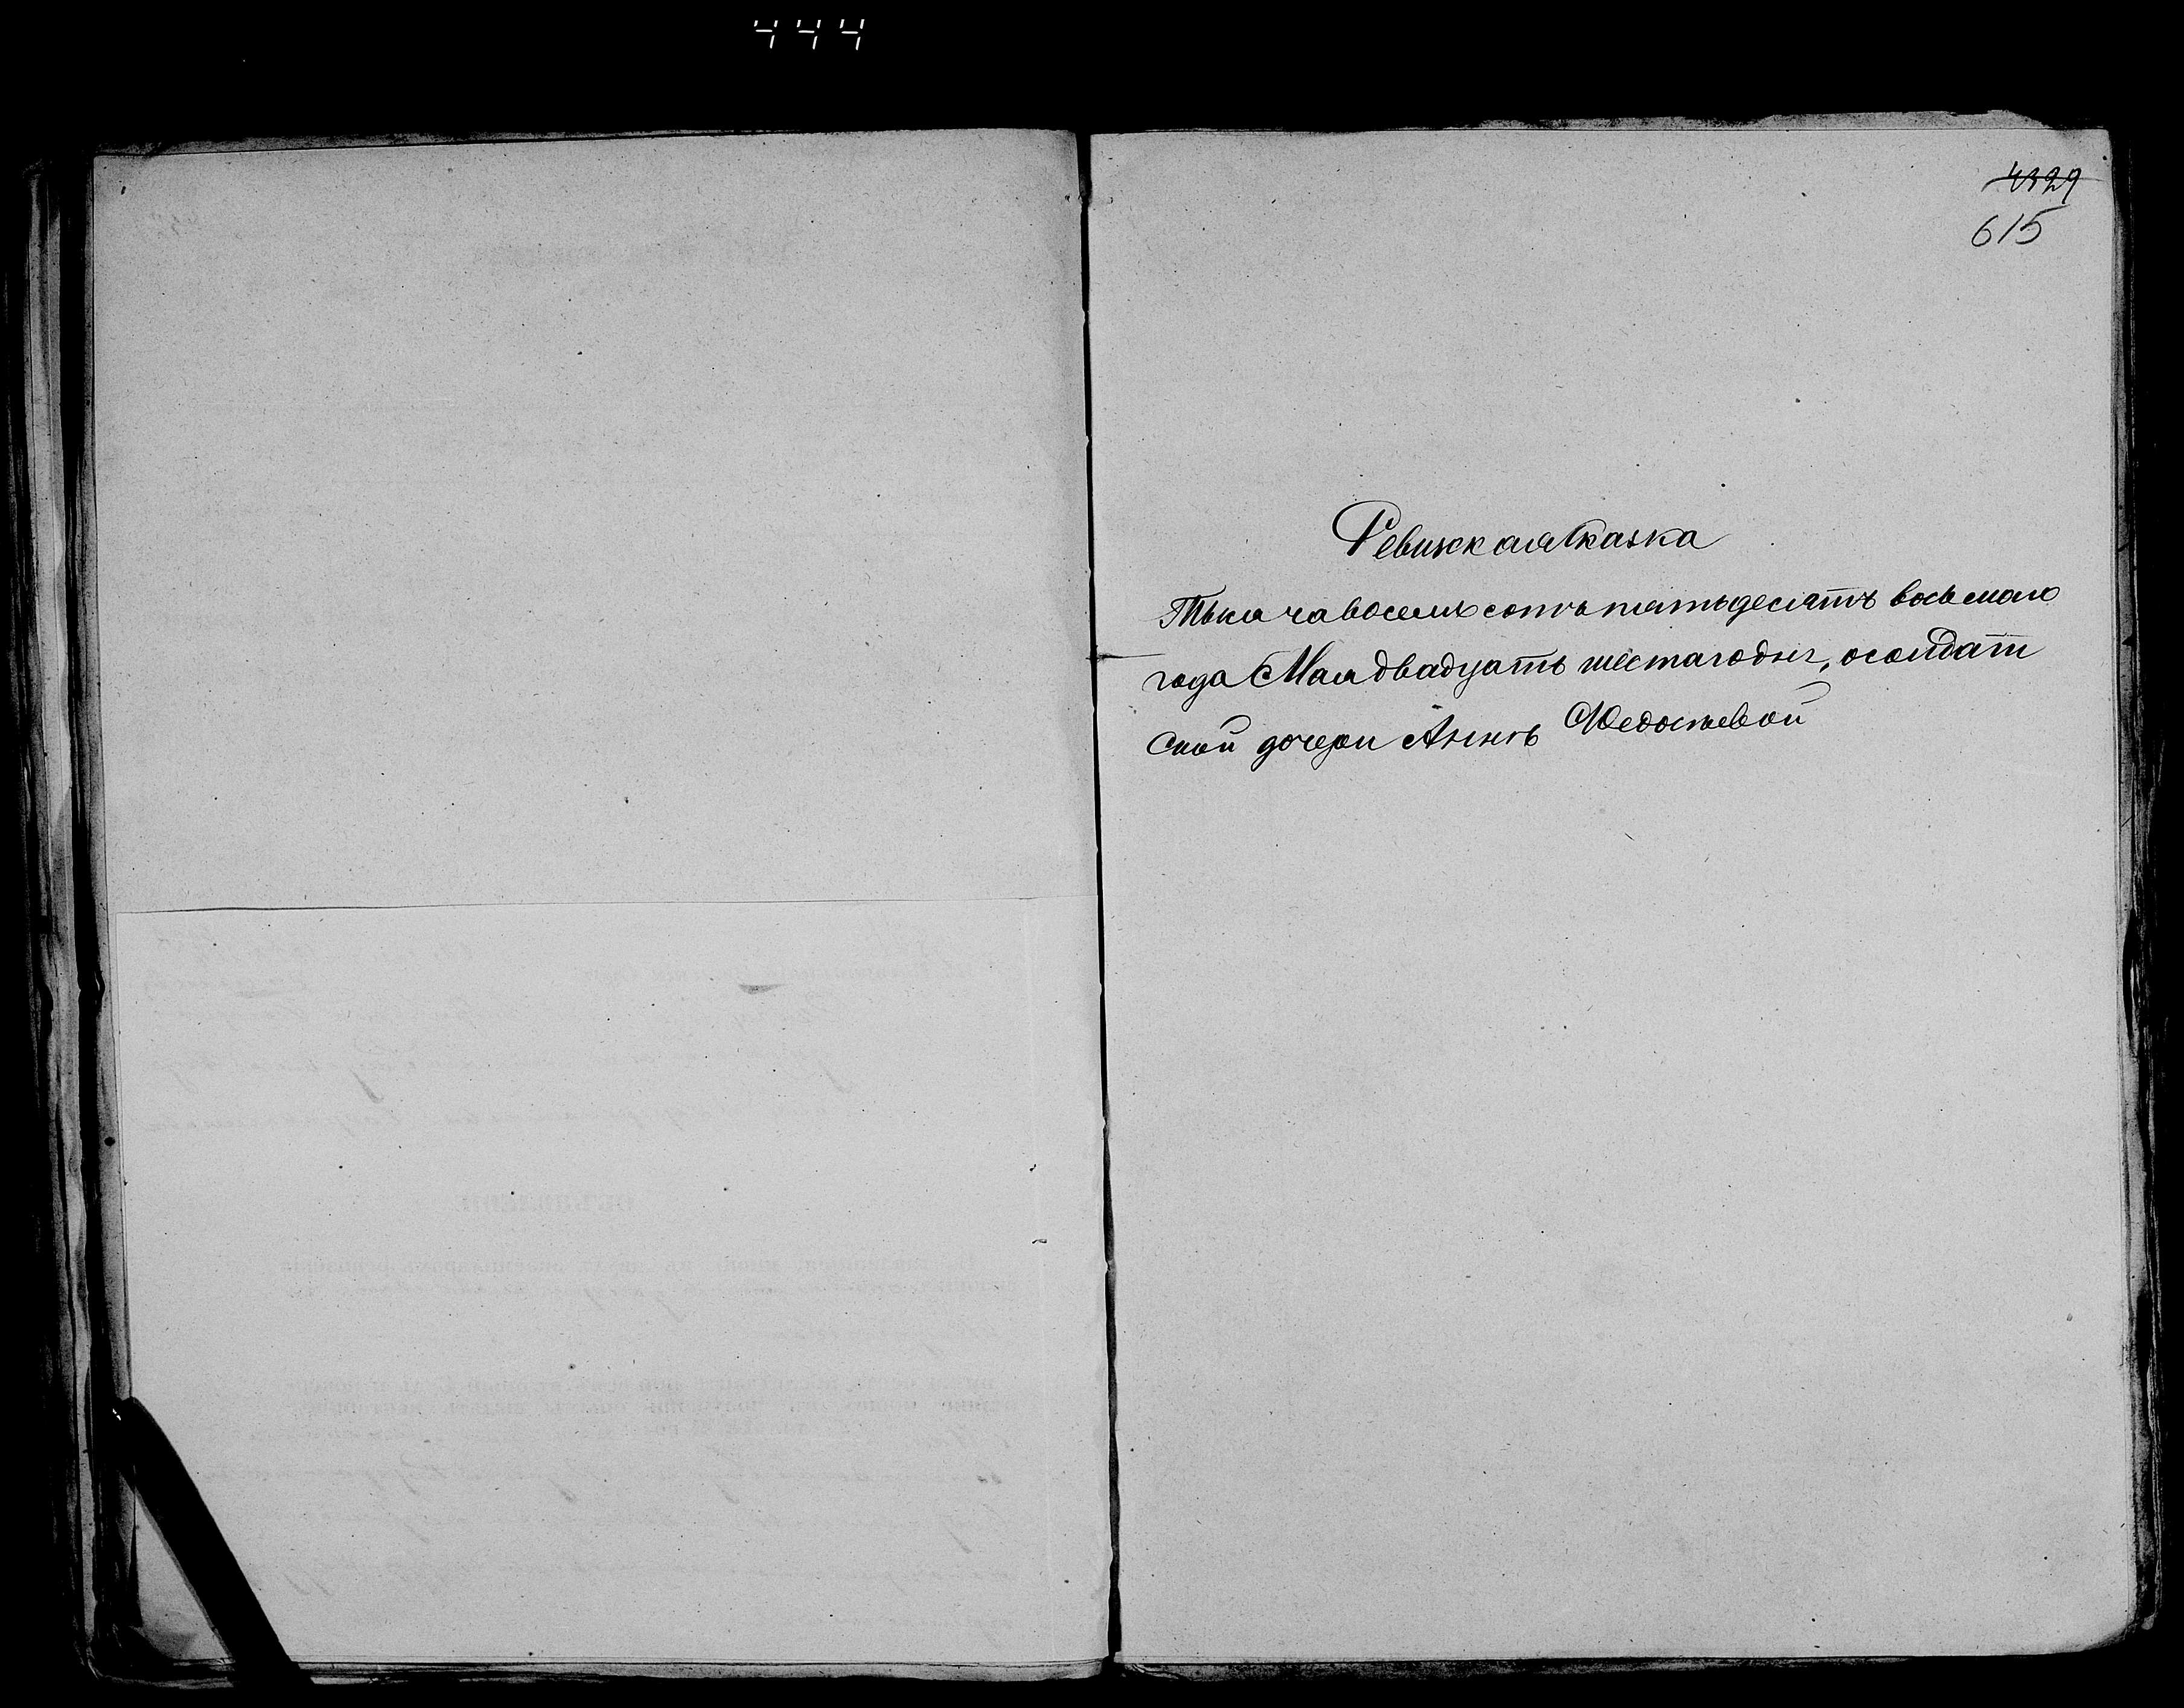 444
4329
615
Ревижская сказка
Тысяча восемь сотъ пятьдесятъ восьмаго
года Мая двадцать шестаго дня, о солдат
ской дочери Аннѣ Федосѣевой